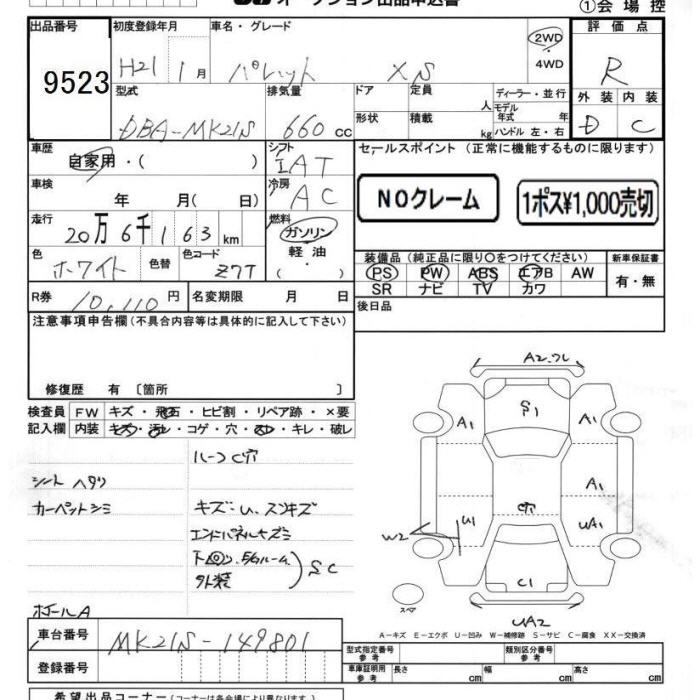 オークション出品申込書
①会場控
出品番号
9523
初度登録年月
H21 1月
車名・グレード
パレット XS
2WD
4WD
評価点
R
外装 内装
D C
型式
DBA-MK21S
排気量
660 cc
ドア
形状
定員
人
積載
kg
ディーラー・並行
モデル年式 年
ハンドル 左・右
車歴
自家用・( )
シフト
IAT
セールスポイント (正常に機能するものに限ります)
NOクレーム
1ポス¥1,000売切
車検
年 月( 日)
冷房
AC
走行
20万6千163km
燃料
ガソリン
軽油
( )
色
ホワイト
色替
色コード
Z7T
装備品 (純正品に限り〇をつけてください)
PS PW ABS エアB AW
SR ナビ TV カワ
新車保証書
有・無
R券
10,110円
名変期限 月 日
後日品
注意事項申告欄(不具合内容等は具体的に記入して下さい)
修復歴 有 〔箇所 〕
検査員記入欄
FW キズ・飛石・ヒビ割・リペア跡・×要
内装 キズ・汚レ・コゲ・穴・スレ・キレ・破レ
ルーフC穴
シート ヘタリ
カーペットシミ
キズ・U、スリキズ
エンドパネルキズミ
下回り、Egルーム、
外装
SC
ポールA
A2.フレ
S1
A1
A1
A1
穴
U1
UA1
W2
C1
スペア
UA2
A-キズ E-エクボ U-凹み W-補修跡 S-サビ C-腐食 XX-交換済
車台番号
MK21S-149801
登録番号
型式指定番号
参考
類別区分番号
参考
車庫証明用
参考
長さ cm
幅 cm
高さ cm
希望出品コーナー(コーナーは各会場により異なります)